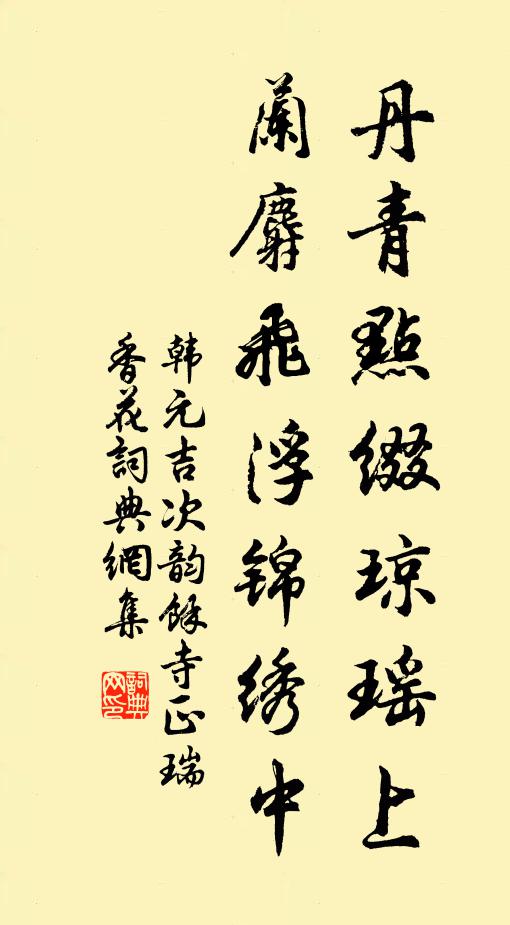 丹青點綴琼瑶上
蘭麝飛浮锦绣中
韩元吉次韵餘寺正瑞
香花詞典網集
詞典网印